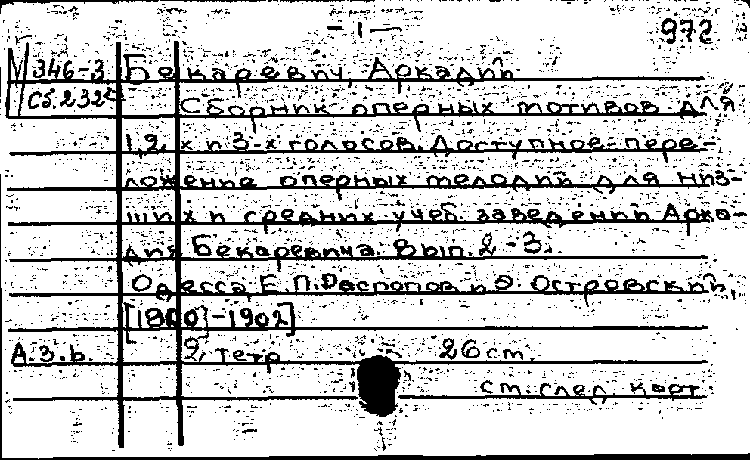 - 1 -
972
М 346-3 Бекаревич, Аркадий
Сб.2324 Сборник оперных мотивов для
1,2,х и 3-х голосов. Доступное пере-
ложение оперных мелодий для низ-
ших и средних учеб. заведений Арка-
дия Бекаревича. Вып. 2-3.
Одесса, Е.П. Распопов и Э. Островский,
[1900]-1902]
А.З.Б. 2 тетр. 26 см.
см. след. карт.